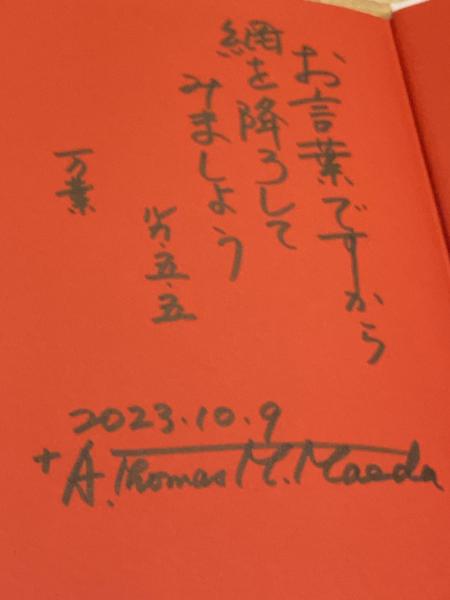 お言葉ですから
網を降ろして
みましょう
五・五
万葉
2023.10.9
+A.Thomas M.Maeda